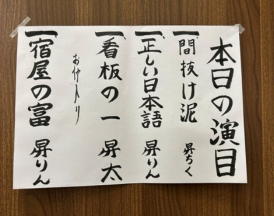 本日の演目
一 間抜け泥 昇ちく
一 正しい日本語 昇りん
一 看板の一 昇太
お仲入り
一 宿屋の富 昇りん